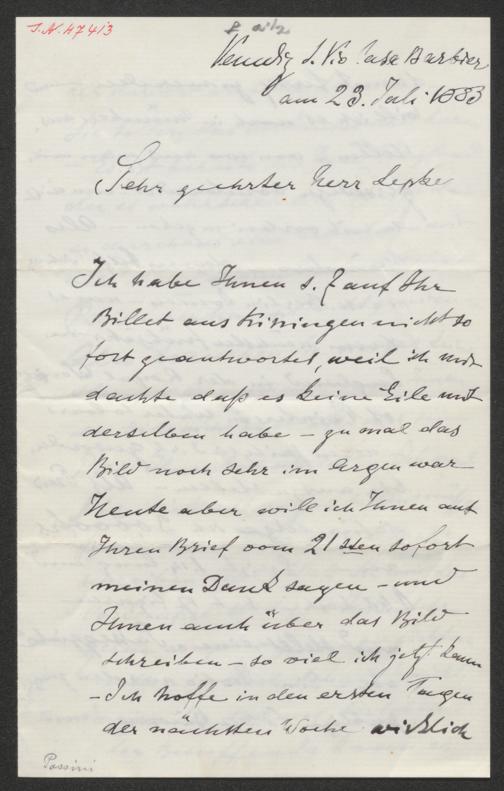 I.N. 47413
Venedig S. Vio Casa Barbier
am 23. Juli 1883
Sehr geehrter Herr Lepke
Ich habe Ihnen s. Z auf Ihr
Billet aus Kissingen nicht so
fort geantwortet, weil ich mir
dachte daß es keine Eile mit
derselben habe – zumal das
Bild noch sehr im Argen war
Heute aber will ich Ihnen auf
Ihren Brief vom 21 sten sofort
meinen Dank sagen – und
Ihnen auch über das Bild
schreiben – so viel ich jetzt kann
– Ich hoffe in den ersten Tagen
der nächsten Woche wirklich
Passini